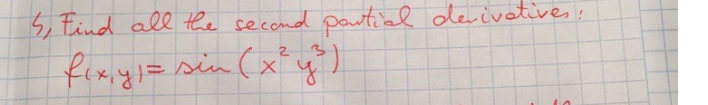 5, Find all the second partial derivatives:
f(x,y)= sin (x² y³)